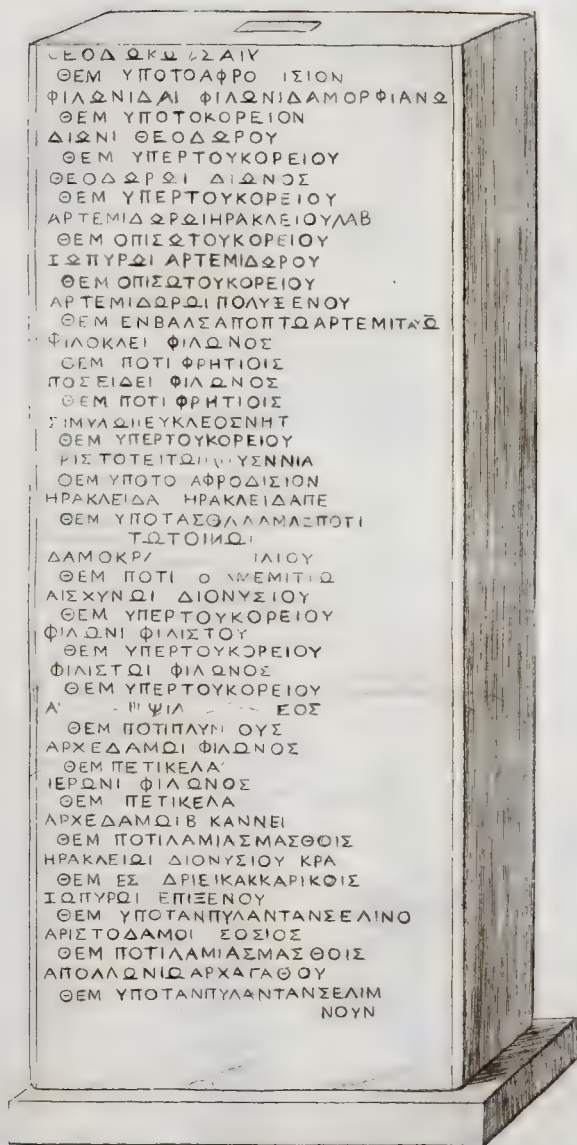 ΘΕΜ ΥΠΟΤΟΑΦΡΟ ΙΣΙΟΝ
ΦΙΛΩΝΙΔΑΙ ΦΙΛΩΝΙΔΑΜΟΡΦΙΑΝΩ
ΘΕΜ ΥΠΟΤΟΚΟΡΕΙΟΝ
ΔΙΩΝΙ ΘΕΟΔΩΡΟΥ
ΘΕΜ ΥΠΕΡΤΟΥΚΟΡΕΙΟΥ
ΘΕΟΔΩΡΩΙ ΔΙΩΝΟΣ
ΘΕΜ ΥΠΕΡΤΟΥΚΟΡΕΙΟΥ
ΑΡΤΕΜΙΔΩΡΩΙΗΡΑΚΛΕΙΟΥΛΑΒ
ΘΕΜ ΟΠΙΣΩΤΟΥΚΟΡΕΙΟΥ
ΙΩΠΥΡΩΙ ΑΡΤΕΜΙΔΩΡΟΥ
ΘΕΜ ΟΠΙΣΩΤΟΥΚΟΡΕΙΟΥ
ΑΡΤΕΜΙΔΩΡΩΙ ΠΟΛΥΞΕΝΟΥ
ΘΕΜ
ΦΙΛΟΚΛΕΙ ΦΙΛΩΝΟΣ
ΘΕΜ ΠΟΤΙ ΦΡΗΤΙΟΙΣ
ΠΟΣΕΙΔΕΙ ΦΙΛΩΝΟΣ
ΘΕΜ ΠΟΤΙ ΦΡΗΤΙΟΙΣ
ΘΕΜ ΥΠΕΡΤΟΥΚΟΡΕΙΟΥ
ΘΕΜ ΥΠΟΤΟ ΑΦΡΟΔΙΣΙΟΝ
ΗΡΑΚΛΕΙΔΑ ΗΡΑΚΛΕΙΔΑΠΕ
ΘΕΜ
ΔΑΜΟΚΡ
ΘΕΜ ΠΟΤΙ
ΑΙΣΧΥΝΩΙ ΔΙΟΝΥΣΙΟΥ
ΘΕΜ ΥΠΕΡΤΟΥΚΟΡΕΙΟΥ
ΦΙΛΩΝΙ ΦΙΛΙΣΤΟΥ
ΘΕΜ ΥΠΕΡΤΟΥΚΟΡΕΙΟΥ
ΦΙΛΙΣΤΩΙ ΦΙΛΩΝΟΣ
ΘΕΜ ΥΠΕΡΤΟΥΚΟΡΕΙΟΥ
ΕΟΣ
ΘΕΜ ΠΟΤΙΠΛΥΝ ΟΥΣ
ΑΡΧΕΔΑΜΩΙ ΦΙΛΩΝΟΣ
ΘΕΜ ΠΕΤΙΚΕΛΑ
ΙΕΡΩΝΙ ΦΙΛΩΝΟΣ
ΘΕΜ ΠΕΤΙΚΕΛΑ
ΑΡΧΕΔΑΜΩΙΒ ΚΑΝΝΕΙ
ΘΕΜ ΠΟΤΙΛΑΜΙΑΣΜΑΣΘΟΙΣ
ΗΡΑΚΛΕΙΩΙ ΔΙΟΝΥΣΙΟΥ ΚΡΑ
ΘΕΜ ΕΣ ΔΡΙΕΙΚΑΚΚΑΡΙΚΟΙΣ
ΙΩΠΥΡΩΙ ΕΠΙΞΕΝΟΥ
ΘΕΜ ΥΠΟΤΑΝΠΥΛΑΝΤΑΝΣΕΛΙΝΟ
ΑΡΙΣΤΟΔΑΜΟΙ ΣΩΣΙΟΣ
ΘΕΜ ΠΟΤΙΛΑΜΙΑΣΜΑΣΘΟΙΣ
ΑΠΟΛΛΩΝΙΩΑΡΧΑΓΑΘΟΥ
ΘΕΜ ΥΠΟΤΑΝΠΥΛΑΝΤΑΝΣΕΛΙΜ
ΝΟΥΝ